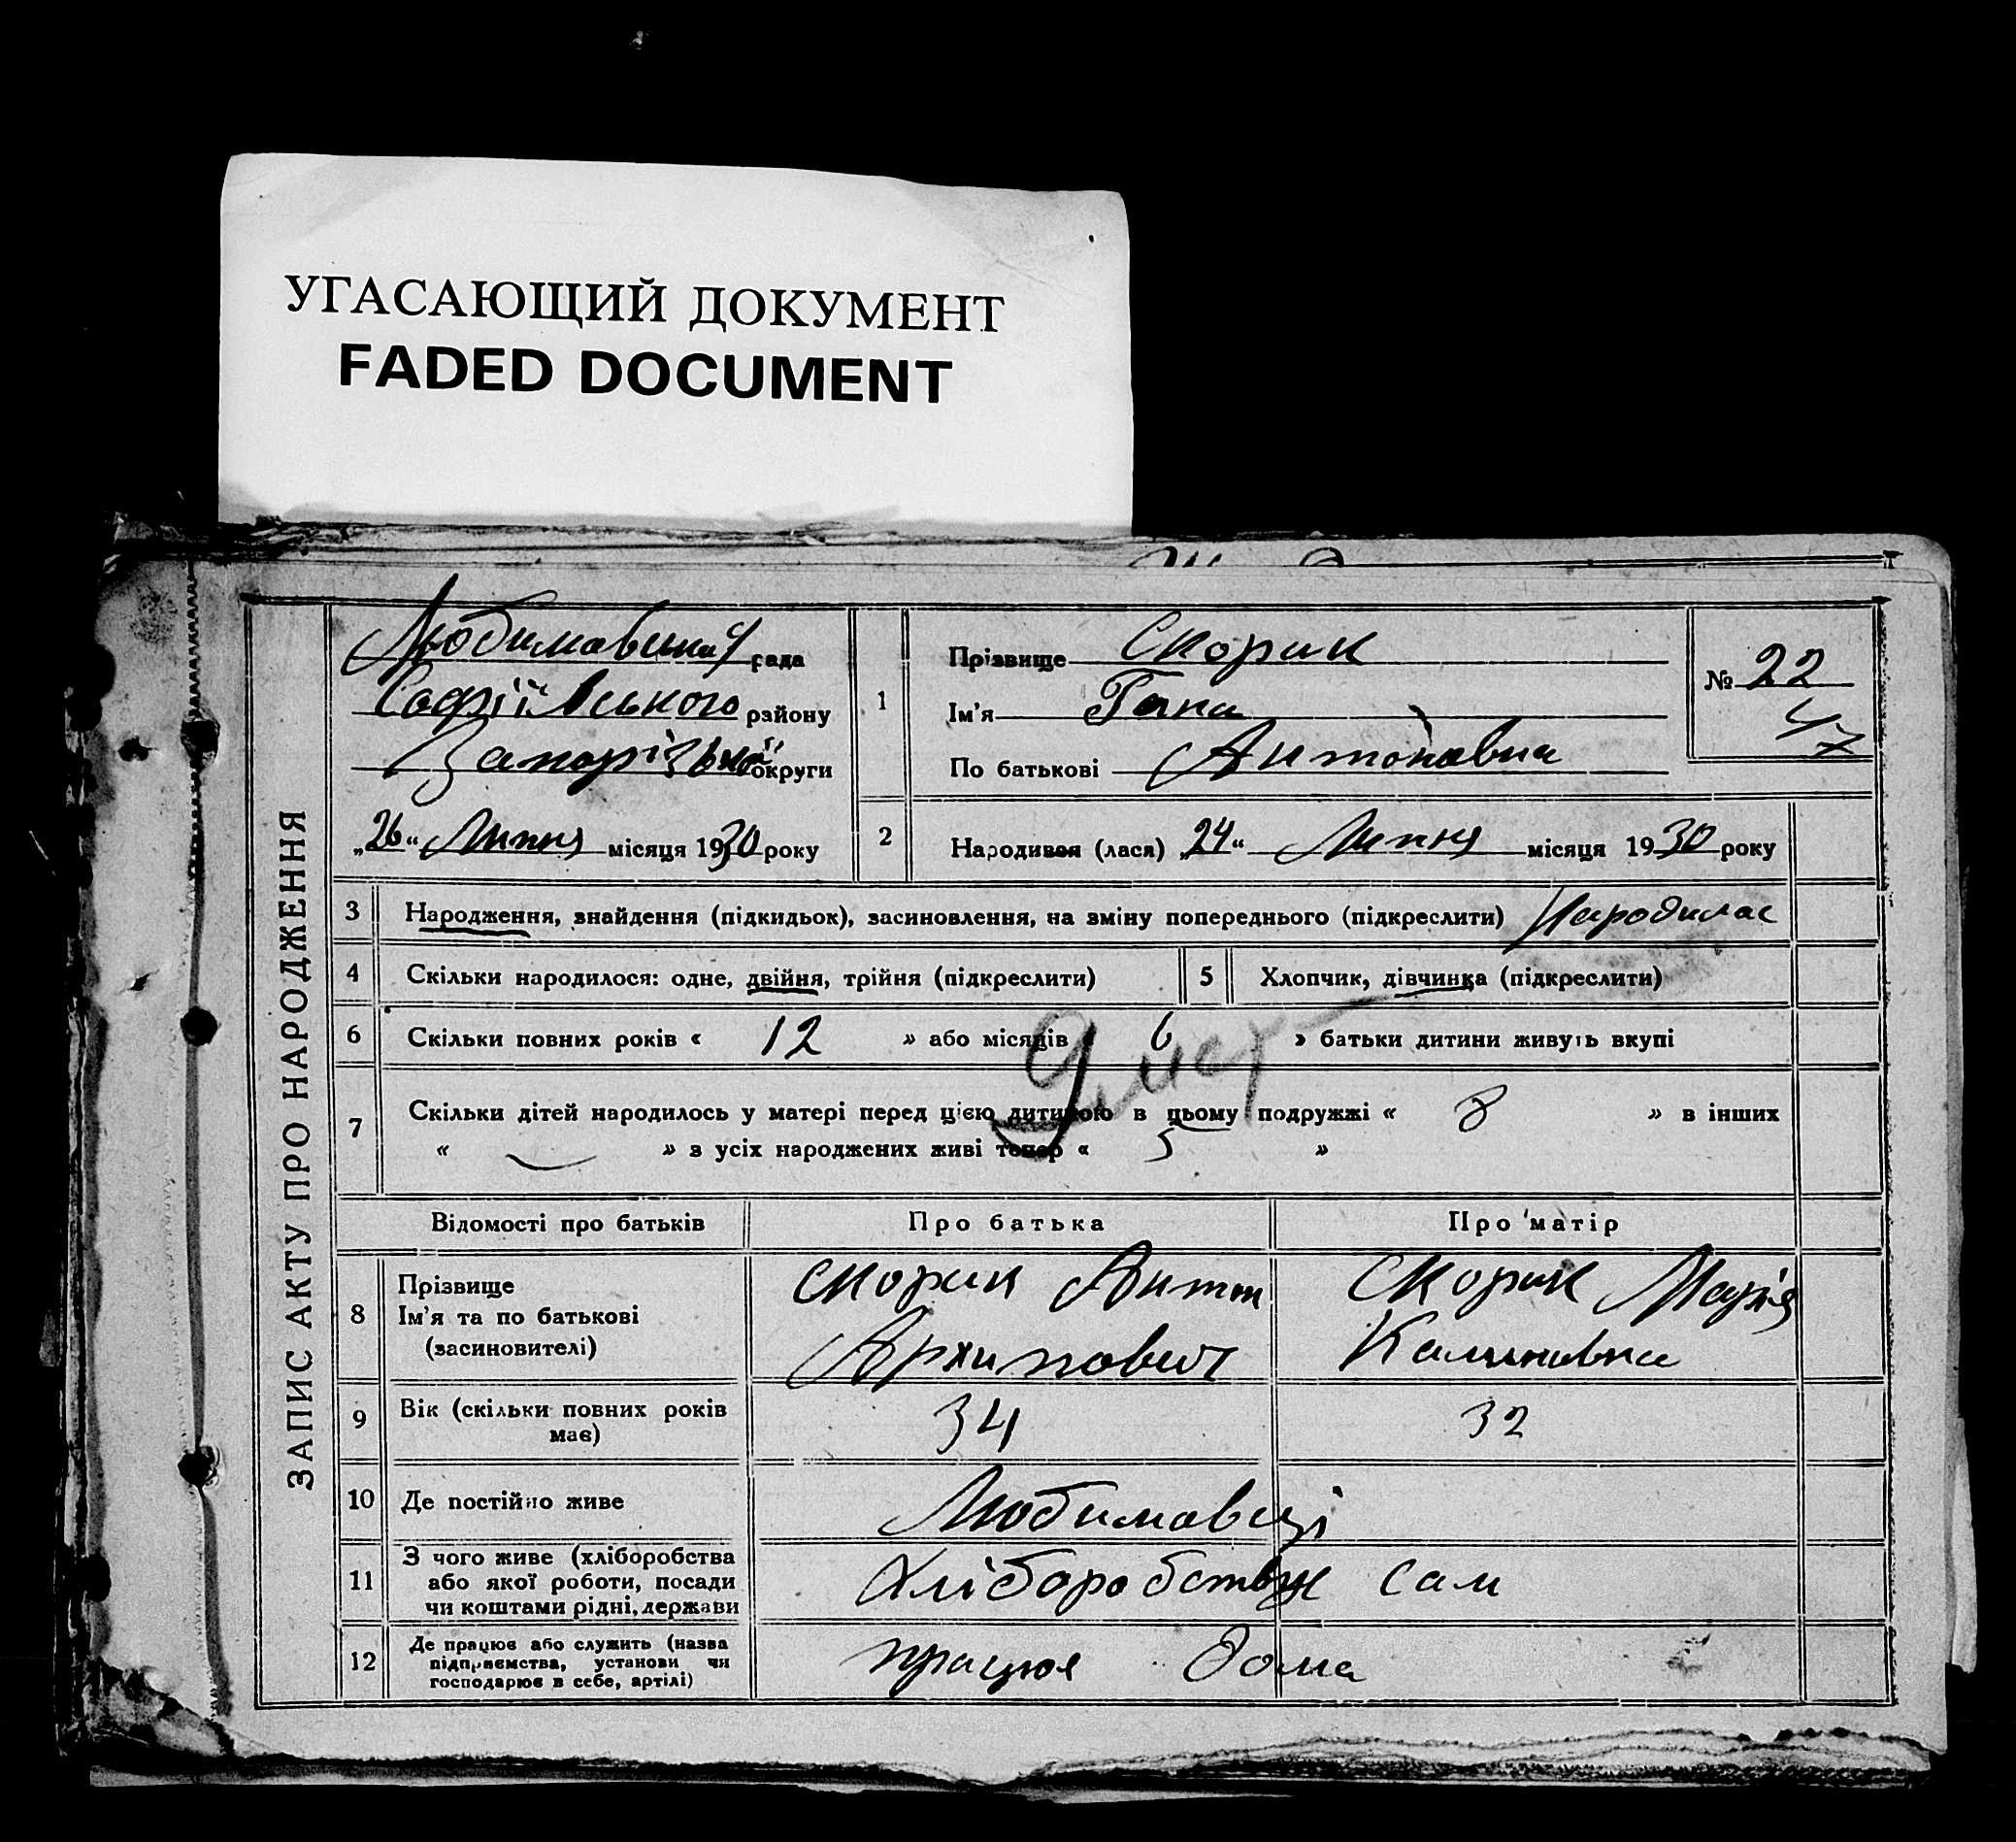 УГАСАЮЩИЙ ДОКУМЕНТ
FADED DOCUMENT
ЗАПИС АКТУ ПРО НАРОДЖЕННЯ
рада
Софіївського району
Запорізької округи
„26“ Липня місяця 1930 року
1
Прізвище Скорик
Ім'я Гана
По батькові Антоновна
№ 22
47
2
Народився (лася) „24“ Липня місяця 1930 року
3 Народження, знайдення (підкидьок), засиновлення, на зміну попереднього (підкреслити) Народилас
4 Скільки народилося: одне, двійня, трійня (підкреслити)
5 Хлопчик, дівчинка (підкреслити)
6 Скільки повних років « 12 » або місяців « 6 » батьки дитини живуть вкупі
7 Скільки дітей народилось у матері перед цією дитиною в цьому подружжі « 8 » в інших
« — » з усіх народжених живі тепер « 5 »
Умер
Відомості про батьків Про батька Про матір
8 Прізвище
Ім'я та по батькові
(засиновителі)
Скорик Антон
Архипович
Скорик Марія
Калиновна
9 Вік (скільки повних років
має)
34 32
10 Де постійно живе Любимовці
11 З чого живе (хліборобства
або якої роботи, посади
чи коштами рідні, держави
сам
12 Де працює або служить (назва
підприємства, установи чи
господарює в себе, артілі)
працює дома